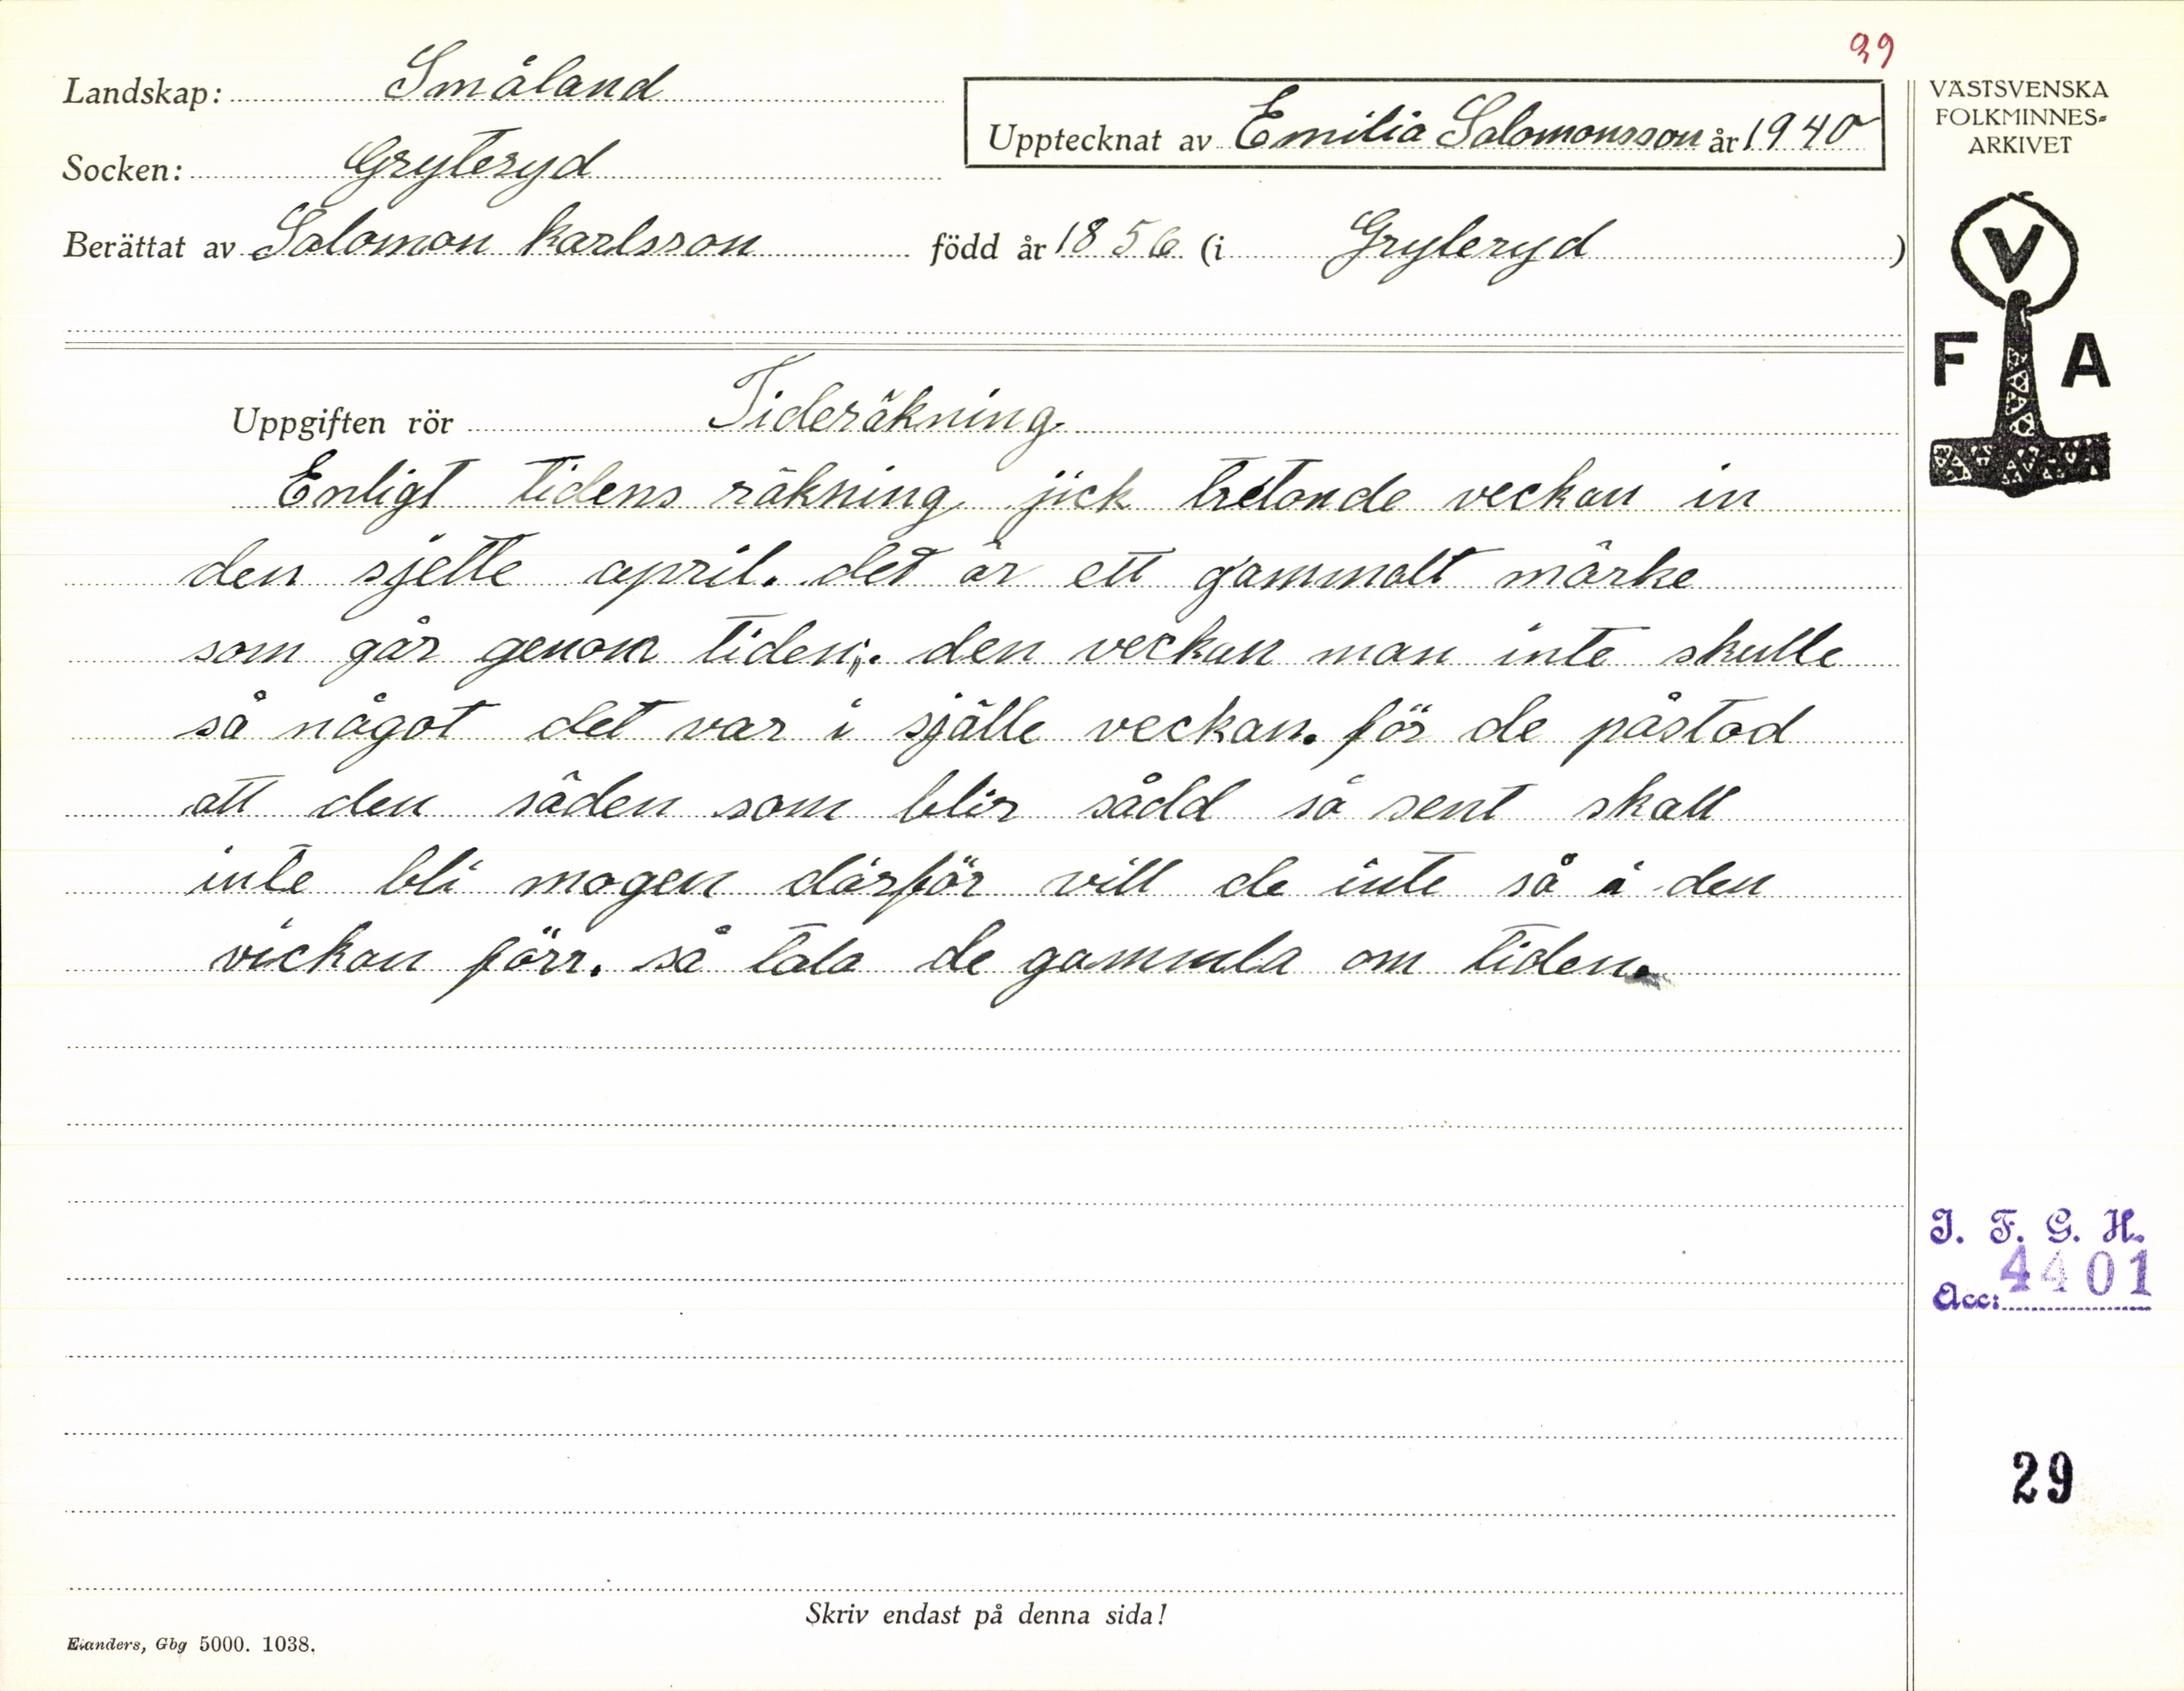 39
Landskap: Småland
Upptecknat av Emilia Salomonsson år 1940
Socken: Gryteryd
Berättat av Salomon Karlsson född år 1856 (i Gryteryd)
Uppgiften rör Tideräkning.
Enligt tidens räkning jick tretonde veckan in
den sjette april. det är ett gammalt märke
som går genom tiden. den veckan man inte skulle
så något det var i själle veckan. för de påstod
att den säden som blir sådd så sent skall
inte bli mogen därför vill de inte så i den
vickan förr. så tala de gammla om tiden.
Skriv endast på denna sida!
Elanders, Gbg 5000. 1038.
VÄSTSVENSKA
FOLKMINNES-
ARKIVET
V
F A
I. F. G. H.
Acc: 4401
29